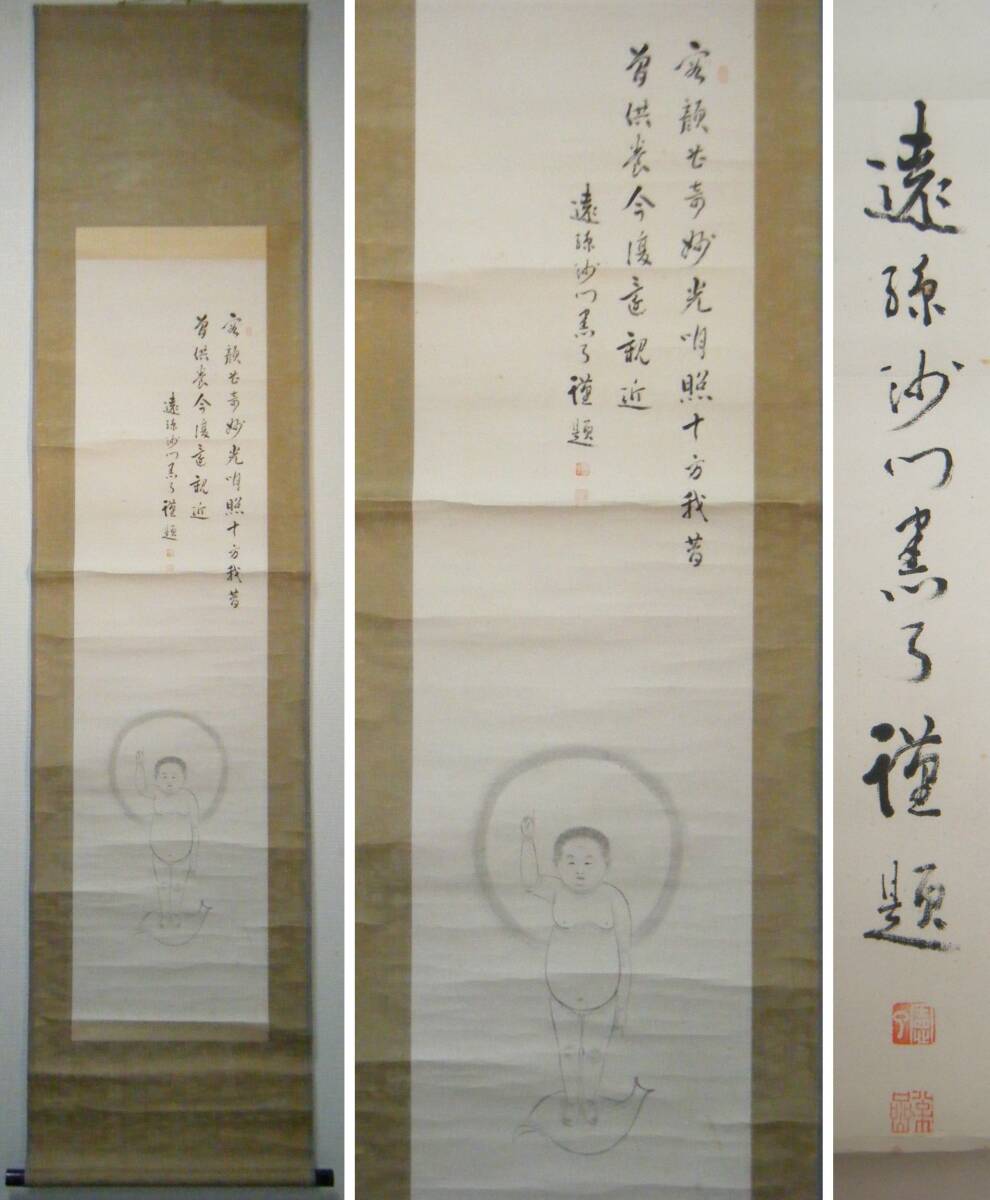 容顔甚奇妙光明照十方我昔
曽供養今復還親近
遠孫沙門了謹題
容顔甚奇妙光明照十方我昔
曽供養今復還親近
遠孫沙門了謹題
遠孫沙門了謹題